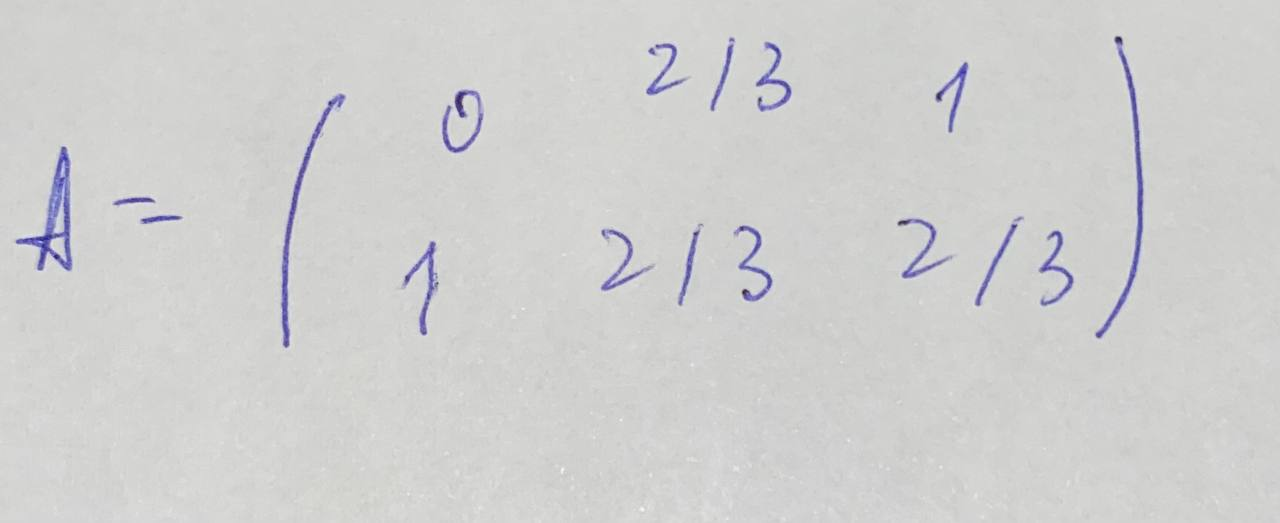 0 2/3 1
A =
1 2/3 2/3